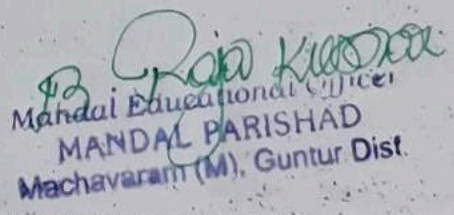 B Raja Kumar
Mandal Educational Officer
MANDAL PARISHAD
Machavaram (M), Guntur Dist.